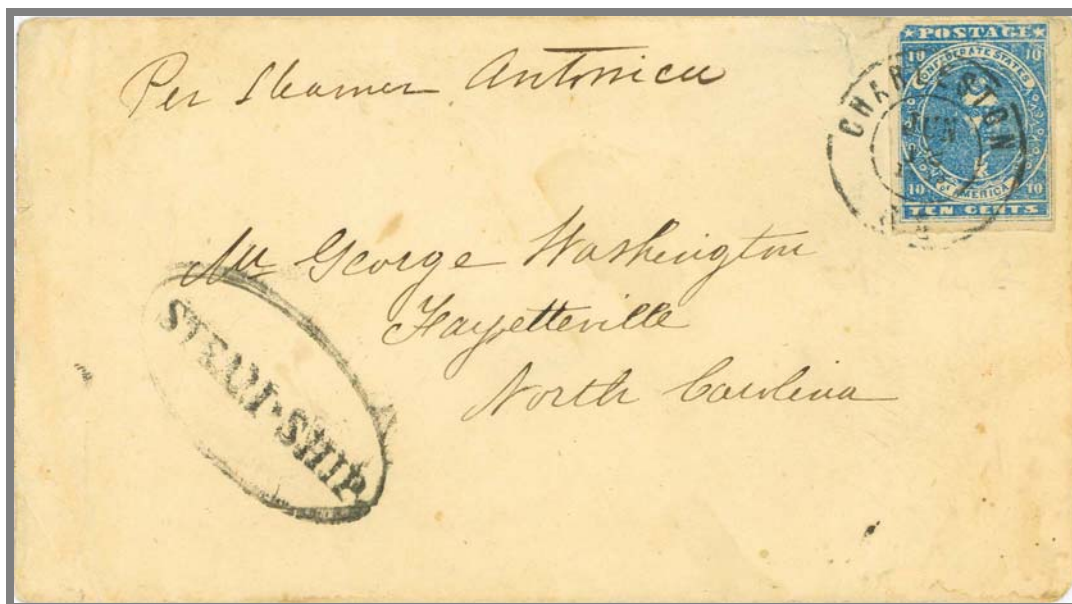 Per Steamer Antonica
★POSTAGE★
10 CONFEDERATE STATES 10
10 OF AMERICA 10
TEN CENTS
CHARLESTON
JUN
Mr George Washington
Fayetteville
North Carolina
STEAM-SHIP